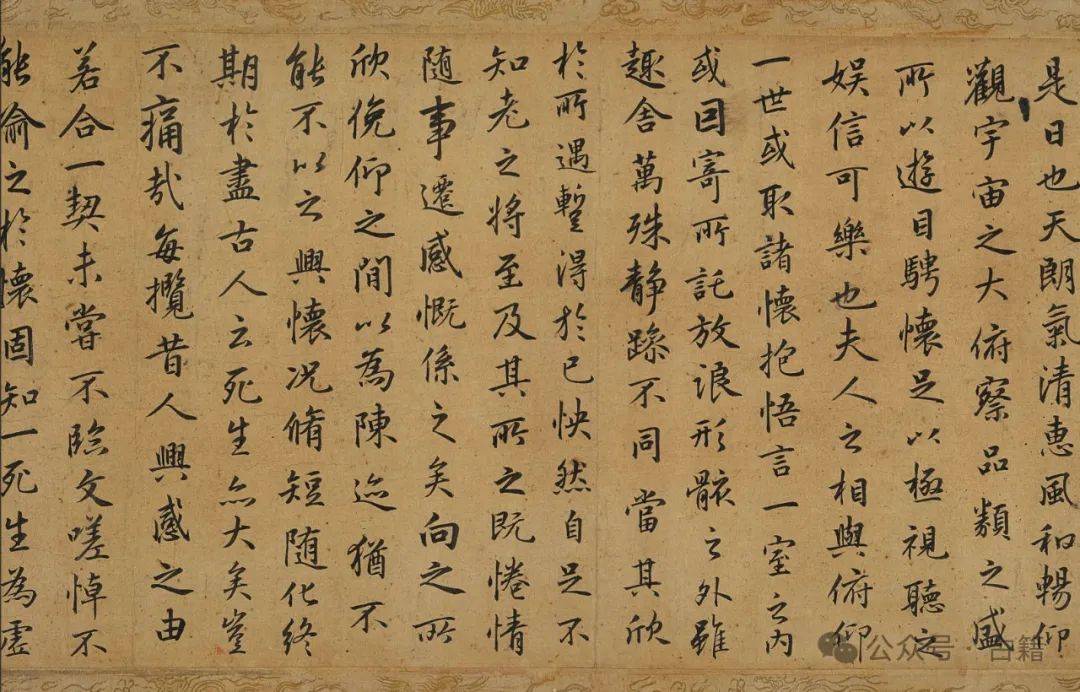 是日也天朗氣清惠風和暢仰
觀宇宙之大俯察品類之盛
所以遊目騁懷足以極視聽之
娱信可樂也夫人之相與俯仰
一世或取諸懷抱悟言一室之内
或因寄所託放浪形骸之外雖
趣舍萬殊静躁不同當其欣
於所遇蹔得於己怏然自足不
知老之將至及其所之既惓情
随事遷感慨係之矣向之所
欣俛仰之間以為陳迹猶不
能不以之興懷况脩短随化終
期於盡古人云死生亦大矣豈
不痛哉每攬昔人興感之由
若合一契未嘗不臨文嗟悼不
能喻之於懷固知一死生為虚
公众号·古籍